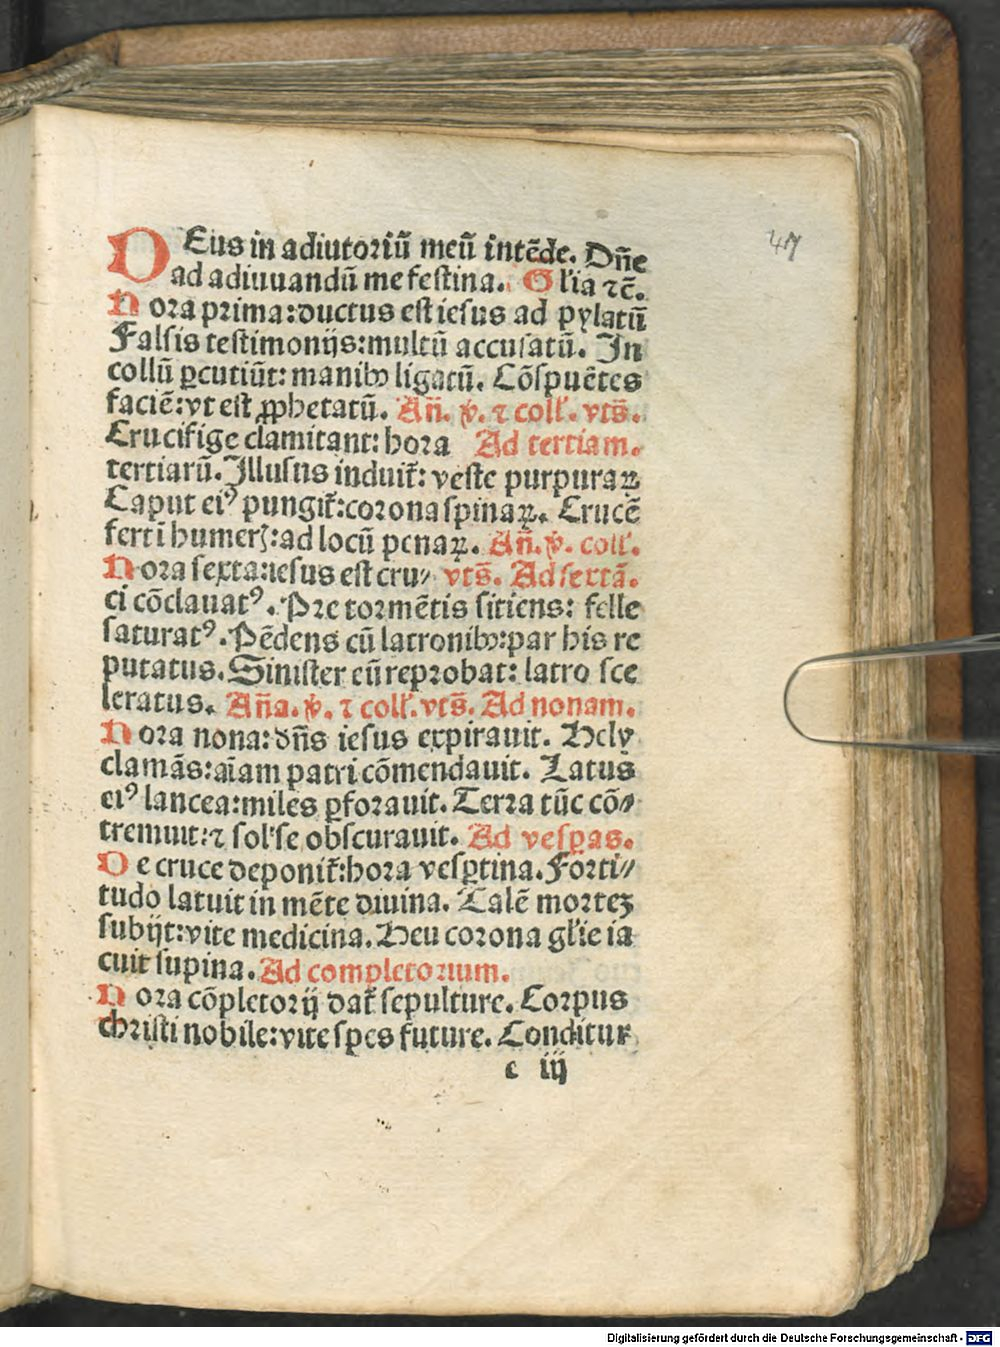 DEus in adiutoriū meū intēde. Dn̄e
ad adiuuandū me festina. Gl'ia ⁊c̄.
Hora prima: ductus est iesus ad pylatū
Falsis testimonijs: multū accusatū. In
collū ꝑcutiūt: manibꝰ ligatū. Cōspuētes
faciē: vt est ꝓphetatū. An̄. ꝟ. ⁊ coll'. vts̄.
Crucifige clamitant: hora Ad tertiam.
tertiarū. Illusus induit᷑: veste purpuraꝝ
Caput eiꝰ pungit᷑: corona spinaꝝ. Crucē
fert ī humerꝭ: ad locū penaꝝ. An̄. ꝟ. coll'.
Hora sexta: iesus est cru⸗ vts̄. Ad sextā.
ci cōclauatꝰ. Pre tormētis sitiens: felle
saturatꝰ. Pēdens cū latronibꝰ: par his re
putatus. Sinister eū reprobat: latro sce
leratus. An̄a. ꝟ. ⁊ coll'. vts̄. Ad nonam.
Hora nona: dn̄s iesus expirauit. Hely
clamās: aīam patri cōmendauit. Latus
eiꝰ lancea: miles ꝑforauit. Terra tūc cō⸗
tremuit: ⁊ sol se obscurauit. Ad vesꝑas.
De cruce deponit᷑: hora vesꝑtina. Forti⸗
tudo latuit in mēte diuina. Talē mortez
subijt: vite medicina. Heu corona gl'ie ia
cuit supina. Ad completorium.
Hora cōpletorij dat᷑ sepulture. Corpus
christi nobile: vite spes future. Conditur
c iij
47
Digitalisierung gefördert durch die Deutsche Forschungsgemeinschaft - DFG